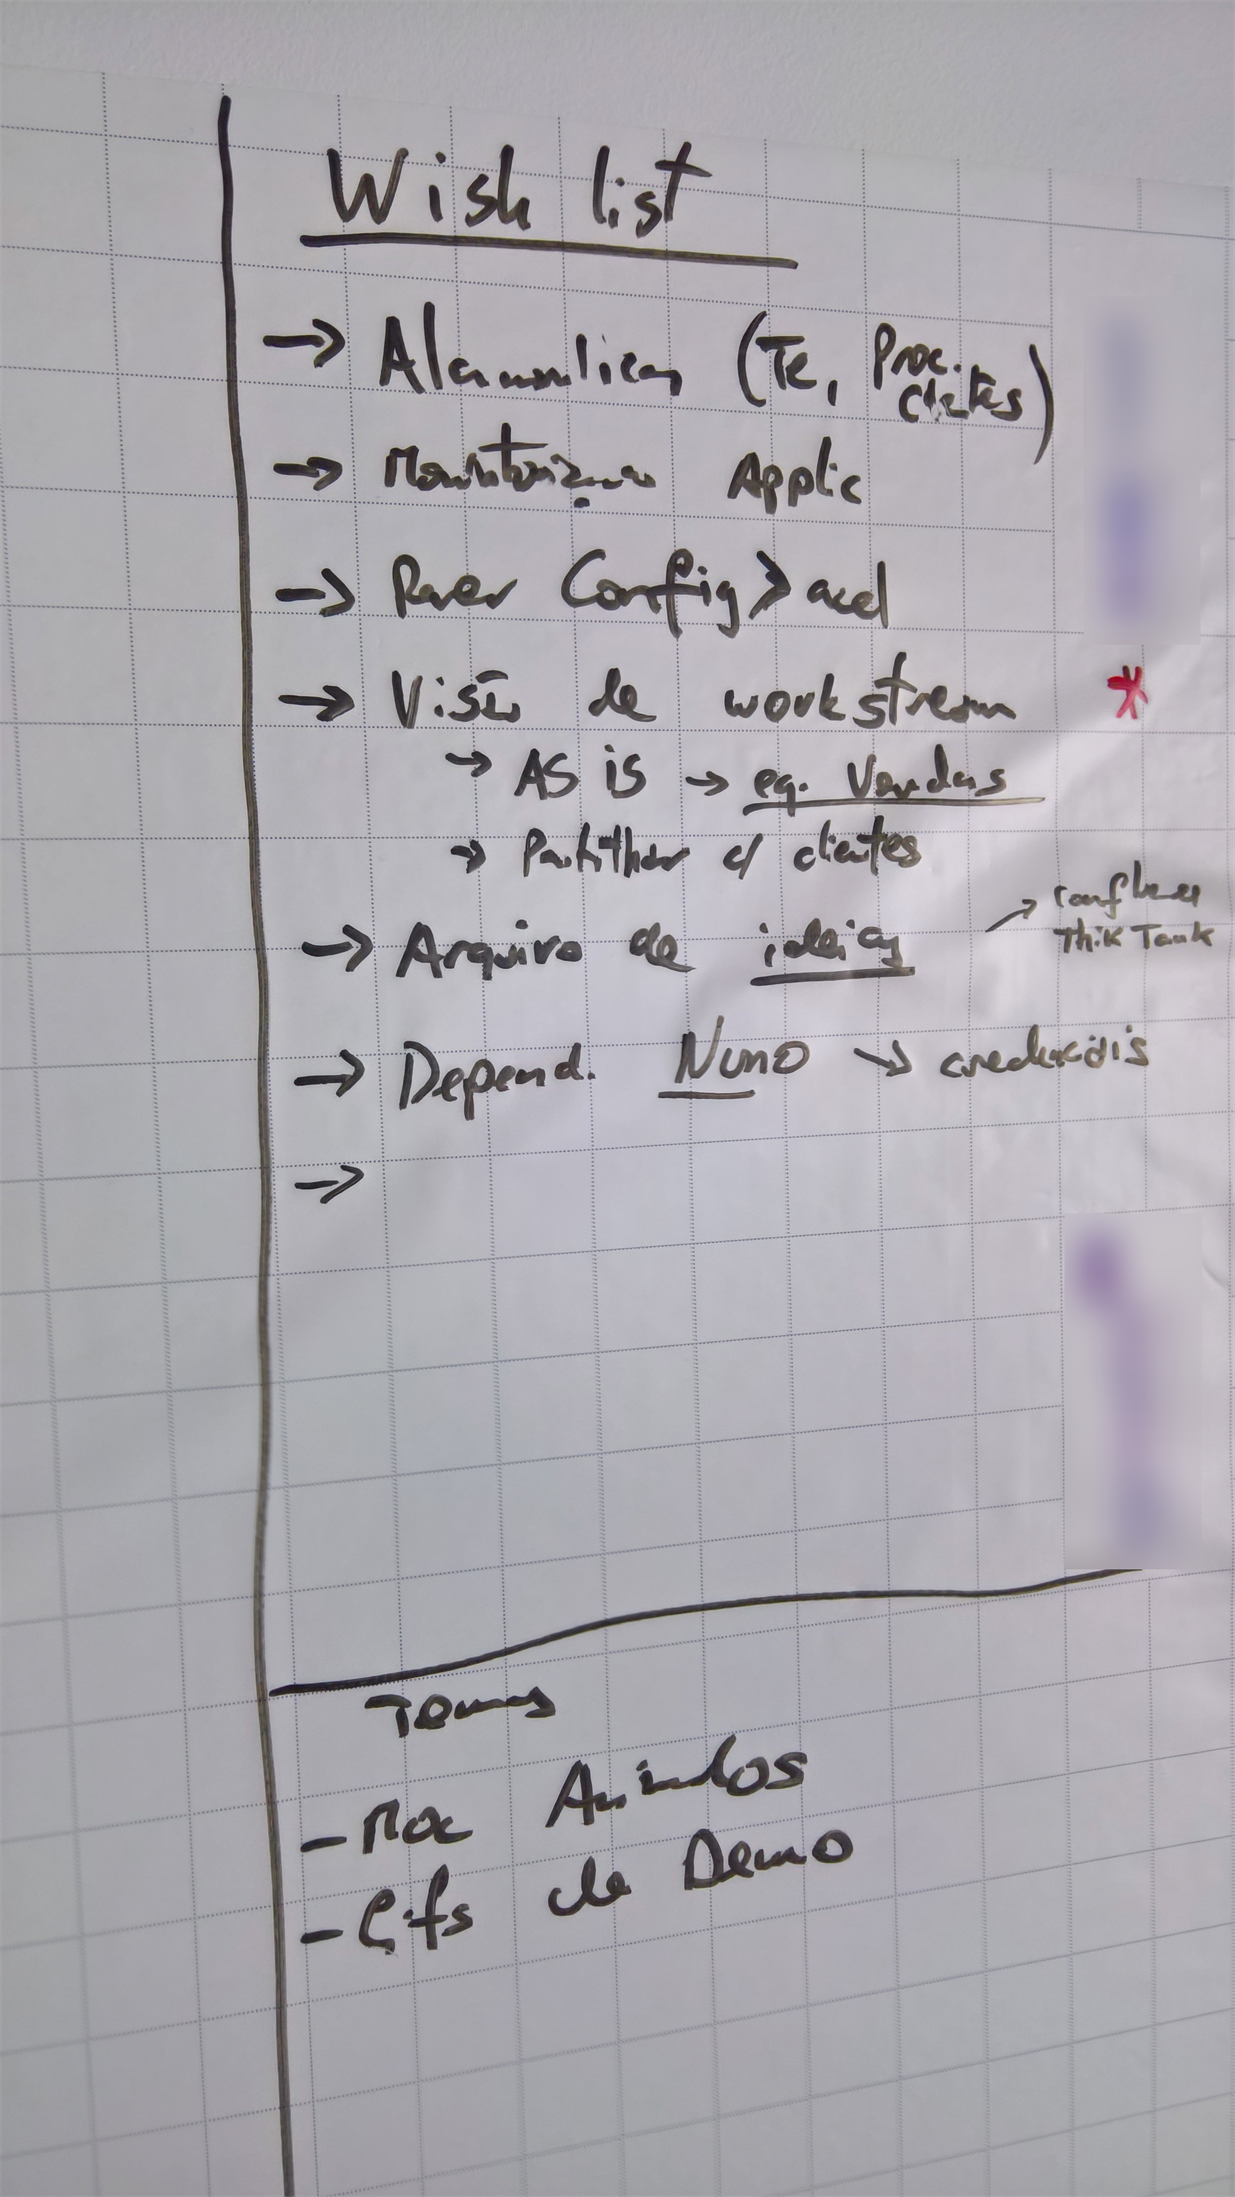 Wish list
→ (Te, Proc. clientes)
→ Applic
→ Rever Config > acel
→ Visão de workstream *
→ AS IS → eq. Vendas
→ Partilhar c/ clientes
→ Arquivo de ideias → confluence
Think Tank
→ Depend. Nuno → credenciais
→
Temas
- Animados
- Gifs de Demo